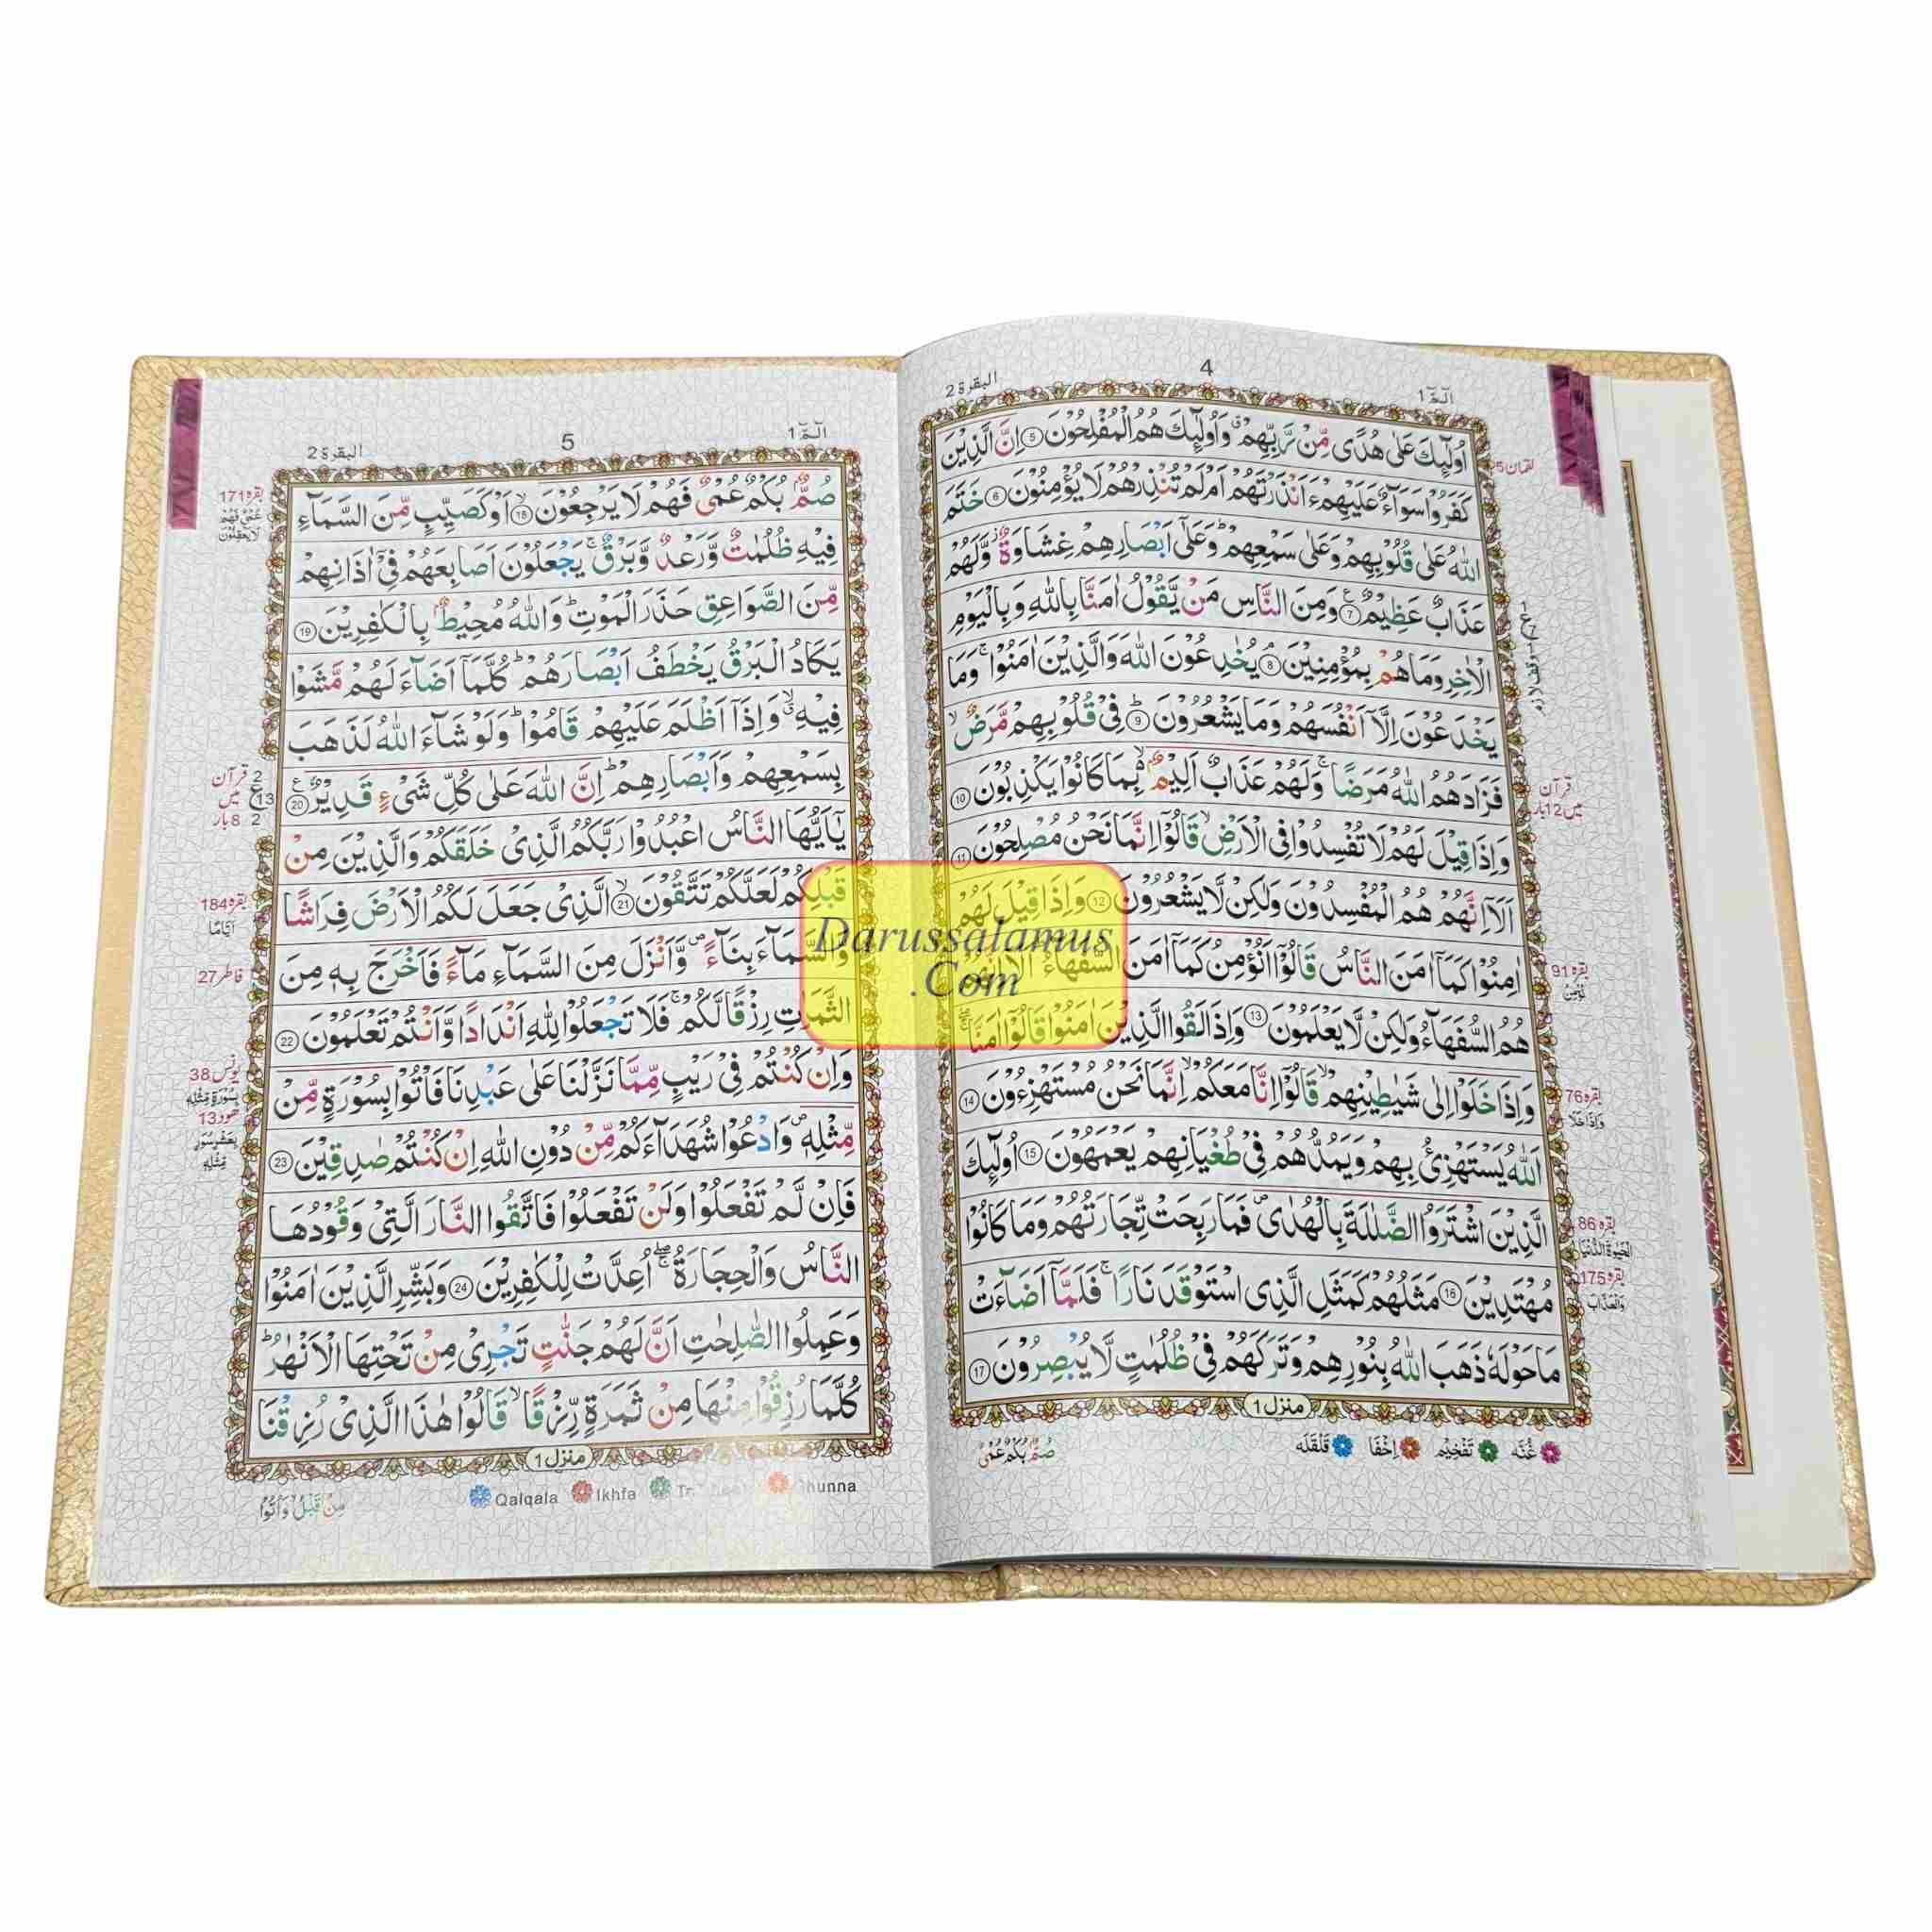 البقرة 2
4
الٓمّٓ 1
اُولٰٓئِكَ عَلٰى هُدًى مِّنْ رَّبِّهِمْ ۗ وَاُولٰٓئِكَ هُمُ الْمُفْلِحُوْنَ ⑤ اِنَّ الَّذِيْنَ
كَفَرُوْا سَوَآءٌ عَلَيْهِمْ ءَاَنْذَرْتَهُمْ اَمْ لَمْ تُنْذِرْهُمْ لَا يُؤْمِنُوْنَ ⑥ خَتَمَ
اللّٰهُ عَلٰى قُلُوْبِهِمْ وَعَلٰى سَمْعِهِمْ ؕ وَعَلٰٓى اَبْصَارِهِمْ غِشَاوَةٌ ز وَّلَهُمْ
عَذَابٌ عَظِيْمٌ ⑦ وَمِنَ النَّاسِ مَنْ يَّقُوْلُ اٰمَنَّا بِاللّٰهِ وَبِالْيَوْمِ
الْاٰخِرِ وَمَا هُمْ بِمُؤْمِنِيْنَ ⑧ يُخٰدِعُوْنَ اللّٰهَ وَالَّذِيْنَ اٰمَنُوْا ۚ وَمَا
يَخْدَعُوْنَ اِلَّآ اَنْفُسَهُمْ وَمَا يَشْعُرُوْنَ ⑨ فِيْ قُلُوْبِهِمْ مَّرَضٌ ۙ
فَزَادَهُمُ اللّٰهُ مَرَضًا ۚ وَلَهُمْ عَذَابٌ اَلِيْمٌ ۢ ۙ بِمَا كَانُوْا يَكْذِبُوْنَ ⑩
وَاِذَا قِيْلَ لَهُمْ لَا تُفْسِدُوْا فِى الْاَرْضِ ۙ قَالُوْٓا اِنَّمَا نَحْنُ مُصْلِحُوْنَ ⑪
اَلَآ اِنَّهُمْ هُمُ الْمُفْسِدُوْنَ وَلٰكِنْ لَّا يَشْعُرُوْنَ ⑫ وَاِذَا قِيْلَ لَهُمْ
اٰمِنُوْا كَمَآ اٰمَنَ النَّاسُ قَالُوْٓا اَنُؤْمِنُ كَمَآ اٰمَنَ السُّفَهَآءُ ؕ اَلَآ اِنَّهُمْ
هُمُ السُّفَهَآءُ وَلٰكِنْ لَّا يَعْلَمُوْنَ ⑬ وَاِذَا لَقُوا الَّذِيْنَ اٰمَنُوْا قَالُوْٓا اٰمَنَّا ۚۖ
وَاِذَا خَلَوْا اِلٰى شَيٰطِيْنِهِمْ ۙ قَالُوْٓا اِنَّا مَعَكُمْ ۙ اِنَّمَا نَحْنُ مُسْتَهْزِءُوْنَ ⑭
اَللّٰهُ يَسْتَهْزِئُ بِهِمْ وَيَمُدُّهُمْ فِيْ طُغْيَانِهِمْ يَعْمَهُوْنَ ⑮ اُولٰٓئِكَ
الَّذِيْنَ اشْتَرَوُا الضَّلٰلَةَ بِالْهُدٰى ۪ فَمَا رَبِحَتْ تِّجَارَتُهُمْ وَمَا كَانُوْا
مُهْتَدِيْنَ ⑯ مَثَلُهُمْ كَمَثَلِ الَّذِى اسْتَوْقَدَ نَارًا ۚ فَلَمَّآ اَضَآءَتْ
مَا حَوْلَهٗ ذَهَبَ اللّٰهُ بِنُوْرِهِمْ وَتَرَكَهُمْ فِيْ ظُلُمٰتٍ لَّا يُبْصِرُوْنَ ⑰
منزل 1
غُنَّه تَفْخِيْم اِخْفَا قَلْقَلَه
صُمٌّ بُكْمٌ عُمْيٌ
لقمان 5
قرآن
میں 12 بار
بقره 91
بقره 76
وَاِذَا خَلَا
بقره 86
الْحَيٰوةَ الدُّنْيَا
بقره 175
وَالْعَذَابَ
البقرة 2
5
الٓمّٓ 1
صُمٌّۢ بُكْمٌ عُمْيٌ فَهُمْ لَا يَرْجِعُوْنَ ⑱ اَوْ كَصَيِّبٍ مِّنَ السَّمَآءِ
فِيْهِ ظُلُمٰتٌ وَّرَعْدٌ وَّبَرْقٌ ۚ يَجْعَلُوْنَ اَصَابِعَهُمْ فِيْٓ اٰذَانِهِمْ
مِّنَ الصَّوَاعِقِ حَذَرَ الْمَوْتِ ؕ وَاللّٰهُ مُحِيْطٌۢ بِالْكٰفِرِيْنَ ⑲
يَكَادُ الْبَرْقُ يَخْطَفُ اَبْصَارَهُمْ ؕ كُلَّمَآ اَضَآءَ لَهُمْ مَّشَوْا
فِيْهِ ۙ وَاِذَآ اَظْلَمَ عَلَيْهِمْ قَامُوْا ؕ وَلَوْ شَآءَ اللّٰهُ لَذَهَبَ
بِسَمْعِهِمْ وَاَبْصَارِهِمْ ؕ اِنَّ اللّٰهَ عَلٰى كُلِّ شَيْءٍ قَدِيْرٌ ⑳
يٰٓاَيُّهَا النَّاسُ اعْبُدُوْا رَبَّكُمُ الَّذِيْ خَلَقَكُمْ وَالَّذِيْنَ مِنْ
قَبْلِكُمْ لَعَلَّكُمْ تَتَّقُوْنَ ۙ ㉑ الَّذِيْ جَعَلَ لَكُمُ الْاَرْضَ فِرَاشًا
وَّالسَّمَآءَ بِنَآءً ۪ وَّاَنْزَلَ مِنَ السَّمَآءِ مَآءً فَاَخْرَجَ بِهٖ مِنَ
الثَّمَرٰتِ رِزْقًا لَّكُمْ ۚ فَلَا تَجْعَلُوْا لِلّٰهِ اَنْدَادًا وَّاَنْتُمْ تَعْلَمُوْنَ ㉒
وَاِنْ كُنْتُمْ فِيْ رَيْبٍ مِّمَّا نَزَّلْنَا عَلٰى عَبْدِنَا فَاْتُوْا بِسُوْرَةٍ مِّنْ
مِّثْلِهٖ ۪ وَادْعُوْا شُهَدَآءَكُمْ مِّنْ دُوْنِ اللّٰهِ اِنْ كُنْتُمْ صٰدِقِيْنَ ㉓
فَاِنْ لَّمْ تَفْعَلُوْا وَلَنْ تَفْعَلُوْا فَاتَّقُوا النَّارَ الَّتِيْ وَقُوْدُهَا
النَّاسُ وَالْحِجَارَةُ ۚۖ اُعِدَّتْ لِلْكٰفِرِيْنَ ㉔ وَبَشِّرِ الَّذِيْنَ اٰمَنُوْا
وَعَمِلُوا الصّٰلِحٰتِ اَنَّ لَهُمْ جَنّٰتٍ تَجْرِيْ مِنْ تَحْتِهَا الْاَنْهٰرُ ؕ
كُلَّمَا رُزِقُوْا مِنْهَا مِنْ ثَمَرَةٍ رِّزْقًا ۙ قَالُوْا هٰذَا الَّذِيْ رُزِقْنَا
منزل 1
Qalqala Ikhfa
مِنْ قَبْلُ وَاُتُوْا
بقره 171
عُمْيٌ فَهُمْ
لَا يَعْقِلُوْنَ
قرآن
میں
8 بار
بقره 184
فاطر 27
یونس 38
بِسُوْرَةٍ مِّثْلِهٖ
هود 13
Darussalamus
.Com